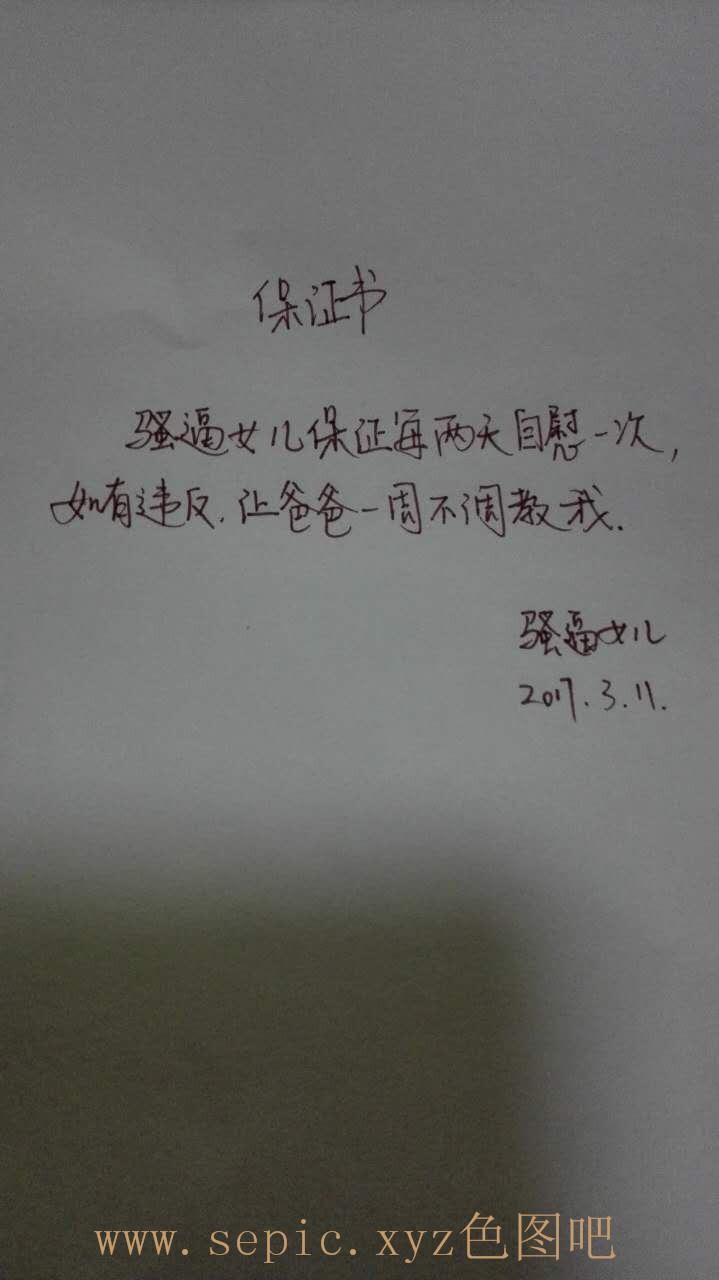 保证书
骚逼女儿保证每两天自慰一次,
如有违反.让爸爸一周不调教我.
骚逼女儿
2017.3.11.
www.sepic.xyz色图吧